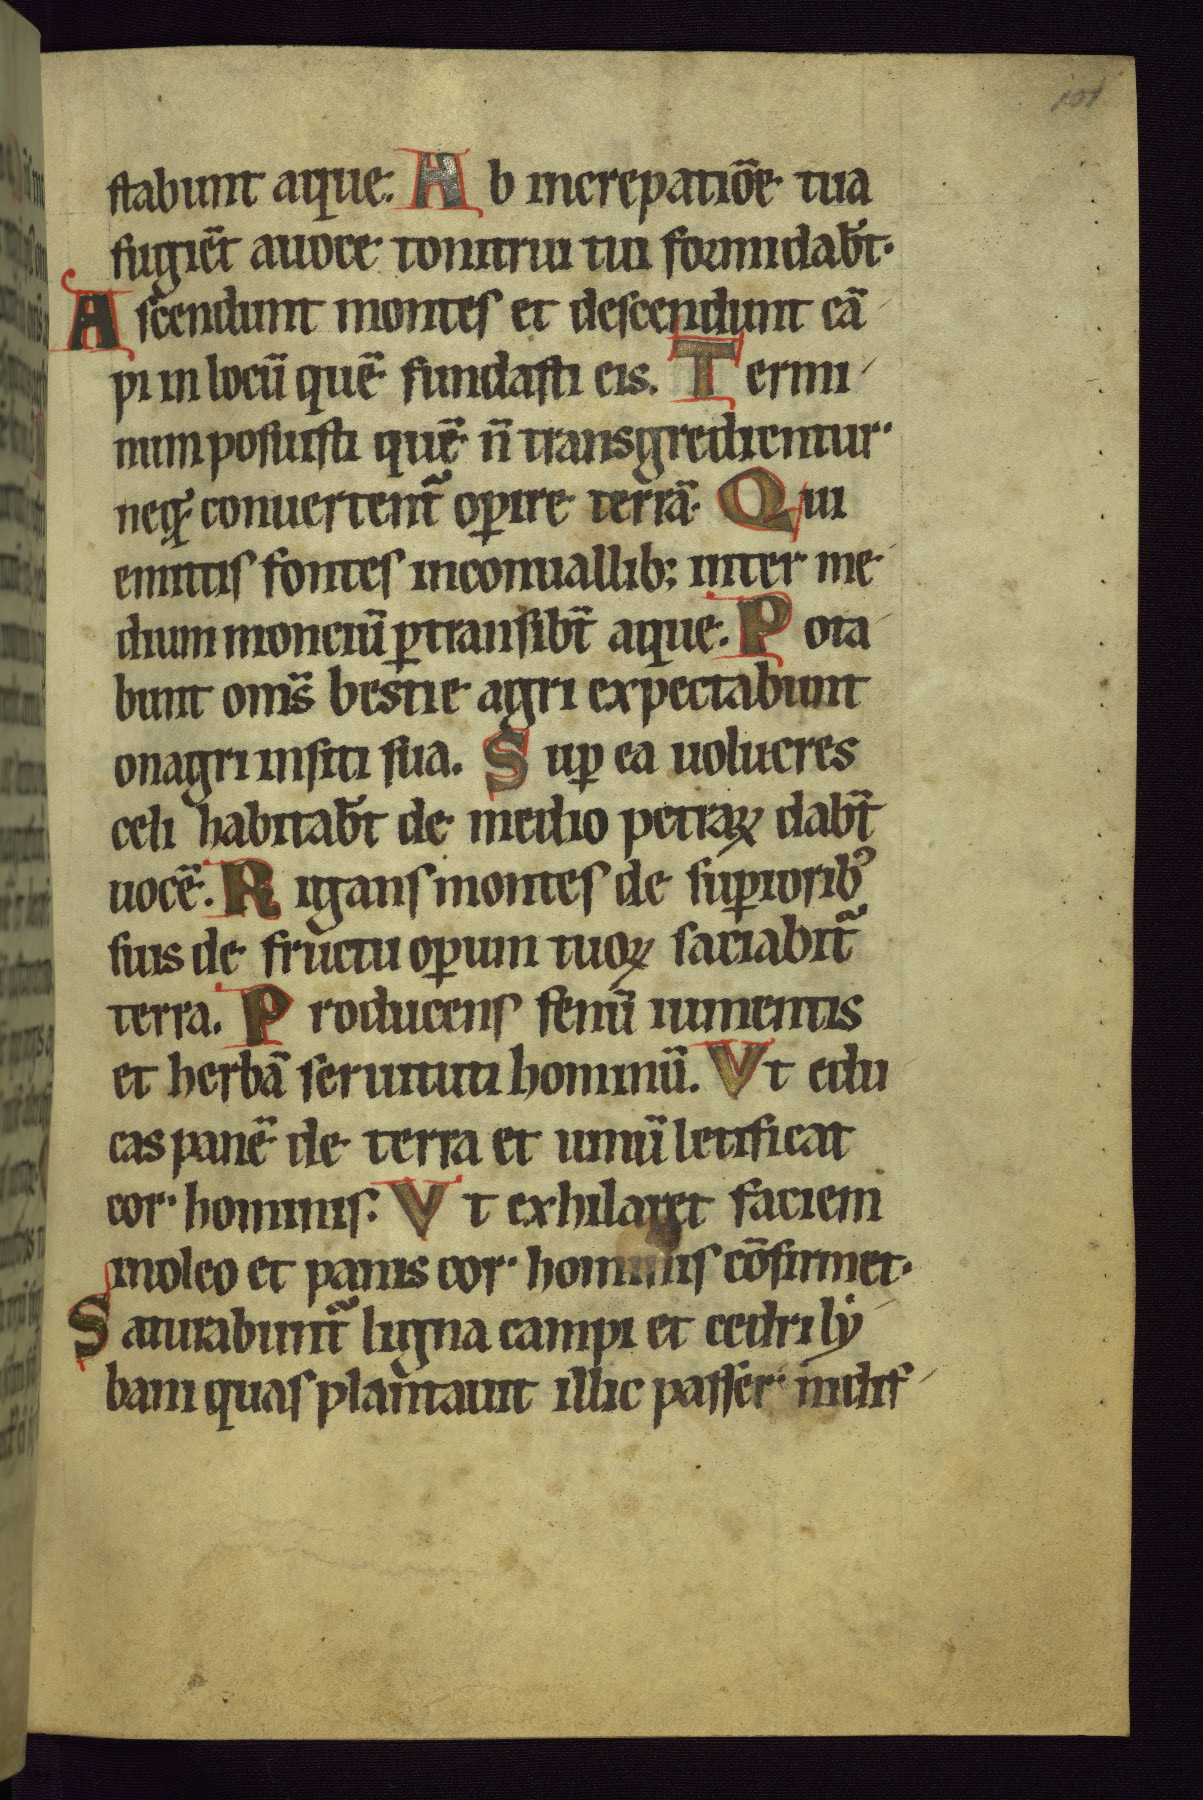 101
stabunt aque. Ab increpatiōe tua
fugiēt auoce tonitrui tui formidab̄t.
Ascendunt montes et descendunt cā
pi in locū quē fundasti eis. Termi
num posuisti quē n̄ transgredientur
neq; conuertent᷑ oꝑire terrā. Qui
emittis fontes inconuallib; inter me
dium montiū ꝑtransib̄t aque. Pota
bunt om̄s bestie agri expectabunt
onagri insiti sua. Suꝑ ea uolucres
celi habitab̄t de medio petraꝝ dab̄t
uocē. Rigans montes de suꝑiorib᷒
suis de fructu oꝑum tuoꝝ saciabit᷑
terra. Producens fenū iumentis
et herbā seruituti hominū. Vt edu
cas panē de terra et uinū letificat
cor hominis. Vt exhilaret faciem
inoleo et panis cor hominis cōfirmet.
Saturabunt᷑ ligna campi et cedri ly
bani quas plantauit illic passer nidif